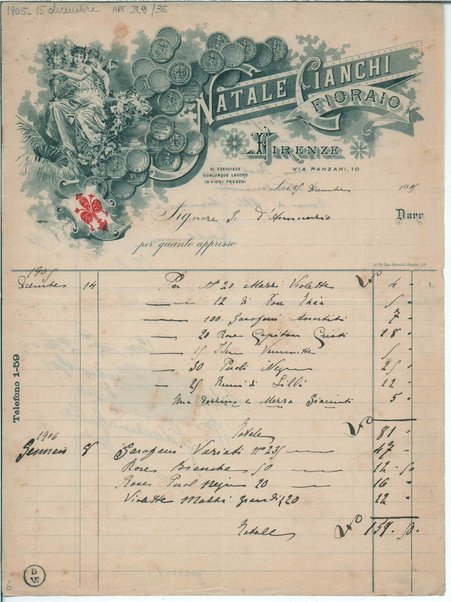 1905 - 15 dicembre
ARC. 21.9/35
NATALE CIANCHI
FIORAIO
FIRENZE
VIA PANZANI, 10
SI ESEGUISCE
QUALUNQUE LAVORO
IN FIORI FRESCHI
15 Dicembre 1905
Signore G. d'Annunzio Dare
per quanto appresso
1905
Dicembre 14 Per N° 20 Mazzi Violette 4 "
12 di Rose Thea 5 "
100 Garofani Assortiti 7 "
20 Rose Capitan Cristi 18 "
15 5 "
30 Paul Neyron 25 "
25 Rami di Lillà 12 "
Una e Mezza Giacinti 5 "
Totale 81 "
1906
Gennaio Garofani Variati N° 235 47 "
Roses Bianche 50 12.50
Roses Paul Neyron 20 16 "
Violette Mazzi grandi 20 12 "
Totale
Telefono 1-59
6